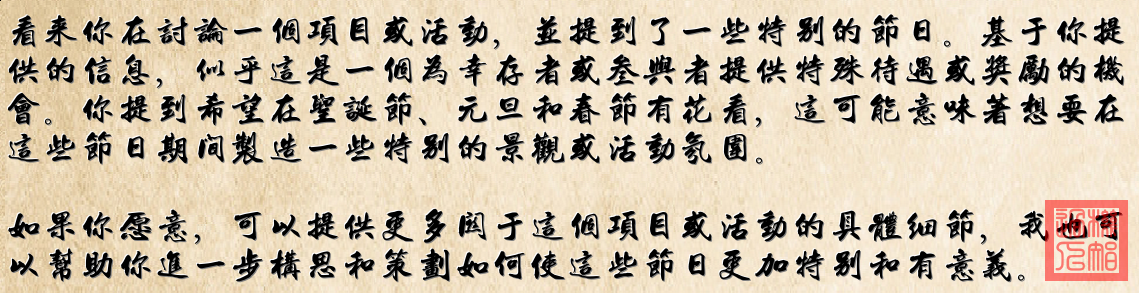 看来你在討論一個項目或活動，並提到了一些特别的節日。基于你提
供的信息，似乎這是一個為幸存者或叁與者提供特殊待遇或奖勵的機
會。你提到希望在聖誕節、元旦和春節有花看，這可能意味著想要在
這些節日期间製造一些特别的景觀或活動氛圍。
如果你愿意，可以提供更多闗于這個項目或活動的具體细節，我也可
以幫助你進一步構思和策劃如何使這些節日更加特别和有意義。